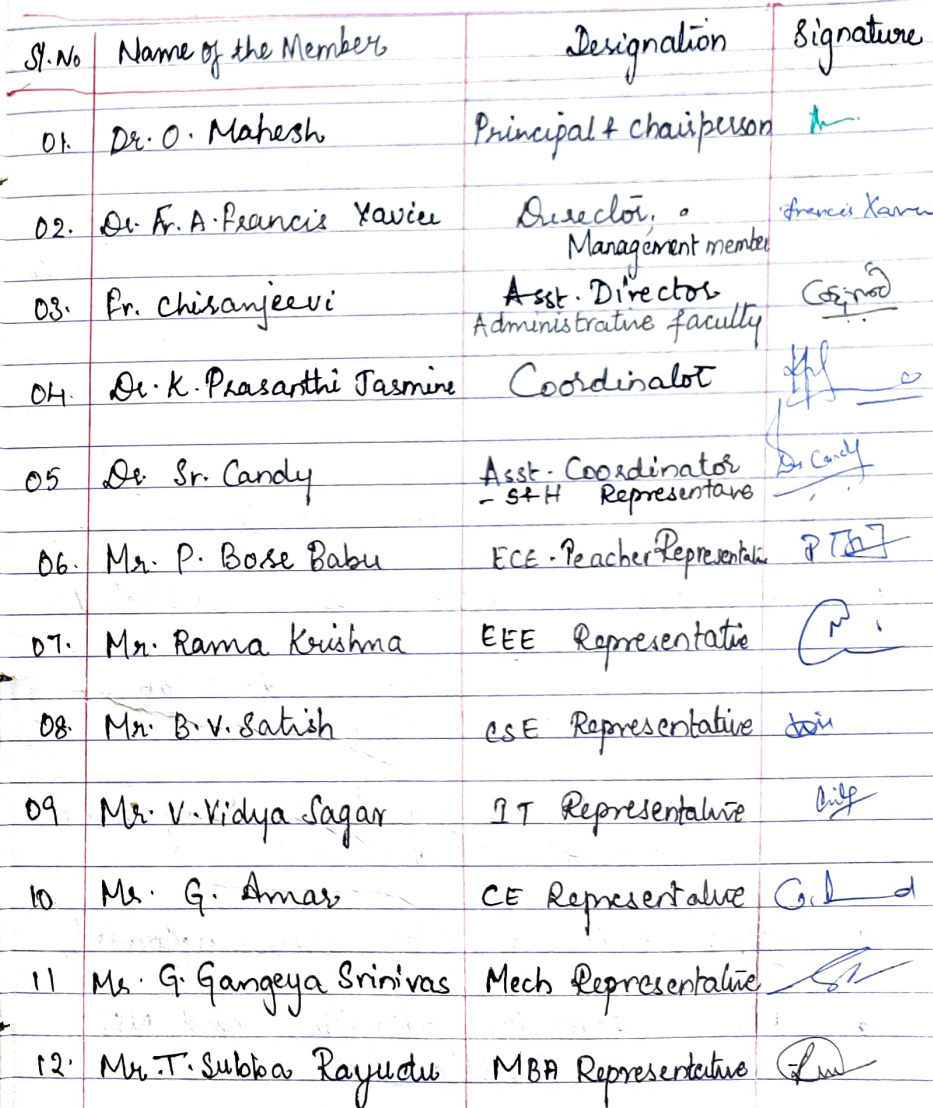 Sl. No Name of the Member Designation Signature
01. Dr. O. Mahesh Principal & chairperson
02. Dr. Fr. A. Francis Xavier Director, Francis Xavier
Management member
03. Fr. Chiranjeevi Asst. Director
Administrative faculty
04. Dr. K. Prasanthi Jasmine Coordinator
05 Dr. Sr. Candy Asst. Coordinator Dr Candy
- S&H Representave
06. Mr. P. Bose Babu ECE - Teacher Representati
07. Mr. Rama Krishna EEE Representatie
08. Mr. B. V. Satish CSE Representative
09 Mr. V. Vidya Sagar IT Representative
10 Mr. G. Amar CE Representative
11 Mr. G. Gangeya Srinivas Mech Representative
12. Mr. T. Subba Rayudu MBA Representative